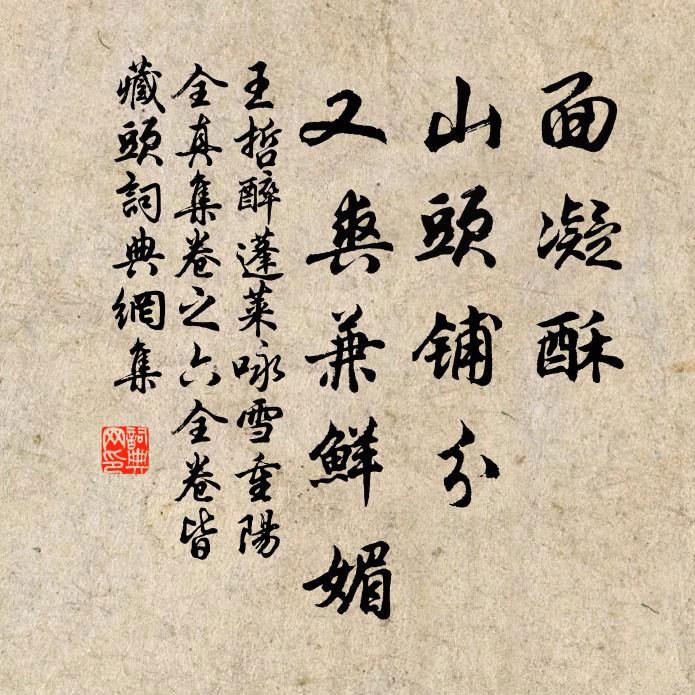 面凝酥
山頭铺分
又爽兼鮮媚
王哲醉蓬萊咏雪重陽
全真集卷之六全卷皆
藏頭詞典網集
詞典
网印